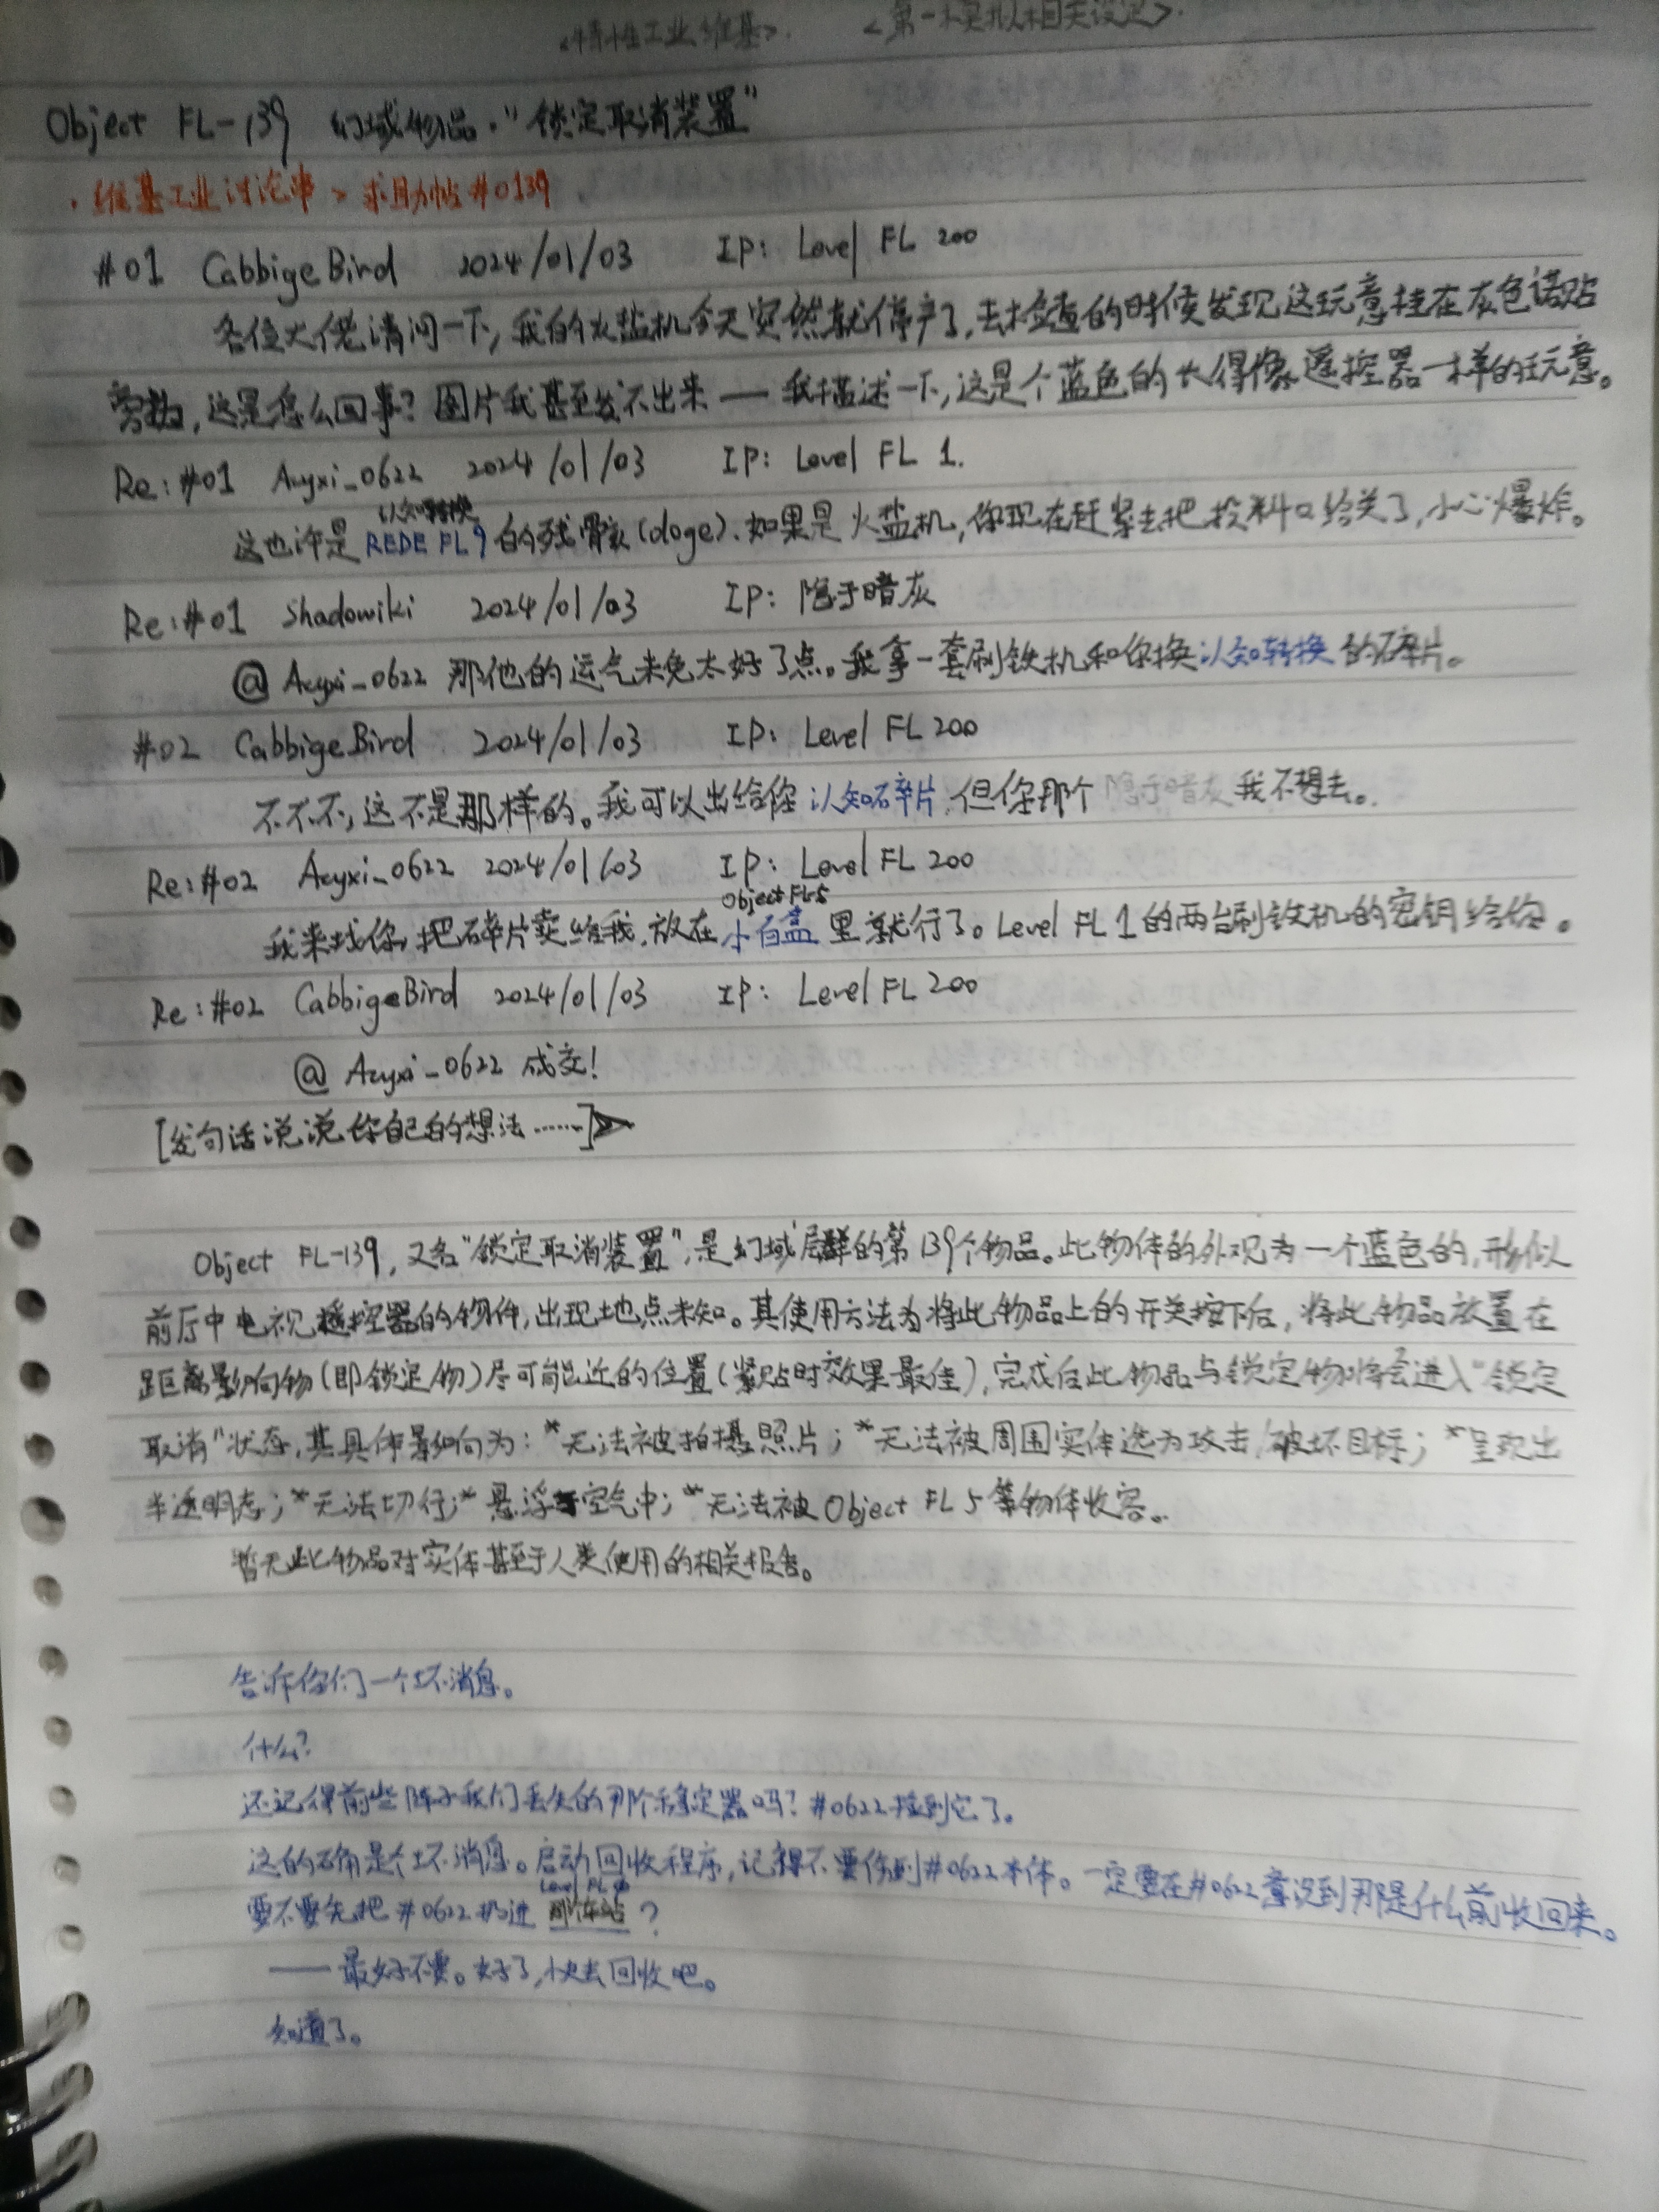 <特性工业维基>. <第一模拟相关设定>.
Object FL-139 幻域物品·"锁定取消装置"
·维基工业讨论串 > 求助帖#0139
#01 CabbigeBird 2024/01/03 IP: Level FL 200
各位大佬请问一下,我的火盐机今天突然就停产了,去检查的时候发现这玩意挂在灰色诺贴
旁边,这是怎么回事?图片我甚至发不出来——我描述一下,这是个蓝色的长得像遥控器一样的玩意。
Re:#01 Acyxi_0622 2024/01/03 IP: Level FL 1.
认知转换
这也许是REDE FL9的残骸(doge).如果是火盐机,你现在赶紧去把投料口给关了,小心爆炸。
Re:#01 Shadowiki 2024/01/03 IP: 隐于暗灰
@Acyxi_0622 那他的运气未免太好了点。我拿一套刷铁机和你换认知转换的碎片。
#02 CabbigeBird 2024/01/03 IP: Level FL 200
不不不,这不是那样的。我可以出给你认知碎片,但你那个隐于暗灰我不想去。
Re:#02 Acyxi_0622 2024/01/03 IP: Level FL 200
Object FL-5
我来找你,把碎片卖给我,放在小白盒里就行了。Level FL 1的两台刷铁机的密钥给你。
Re:#02 CabbigeBird 2024/01/03 IP: Level FL 200
@Acyxi_0622 成交!
[发句话说说你自己的想法……]
Object FL-139,又名"锁定取消装置",是幻域层群的第139个物品。此物体的外观为一个蓝色的,形似
前厅中电视遥控器的物件,出现地点未知。其使用方法为将此物品上的开关按下后,将此物品放置在
距离影响物(即锁定物)尽可能近的位置(紧贴时效果最佳),完成后此物品与锁定物将会进入"锁定
取消"状态,其具体影响为:*无法被拍摄照片;*无法被周围实体选为攻击/破坏目标;*呈现出
半透明态;*无法切行;*悬浮于空气中;*无法被Object FL 5等物体收容。
暂无此物品对实体甚至于人类使用的相关报告。
告诉你们一个坏消息。
什么?
还记得前些阵子我们丢失的那个稳定器吗?#0622捡到它了。
这的确是个坏消息。启动回收程序,记得不要伤到#0622本体。一定要在#0622意识到那是什么前收回来。
Level FL Φ
要不要先把#0622扔进那车站?
——最好不要。好了,快去回收吧。
知道了。